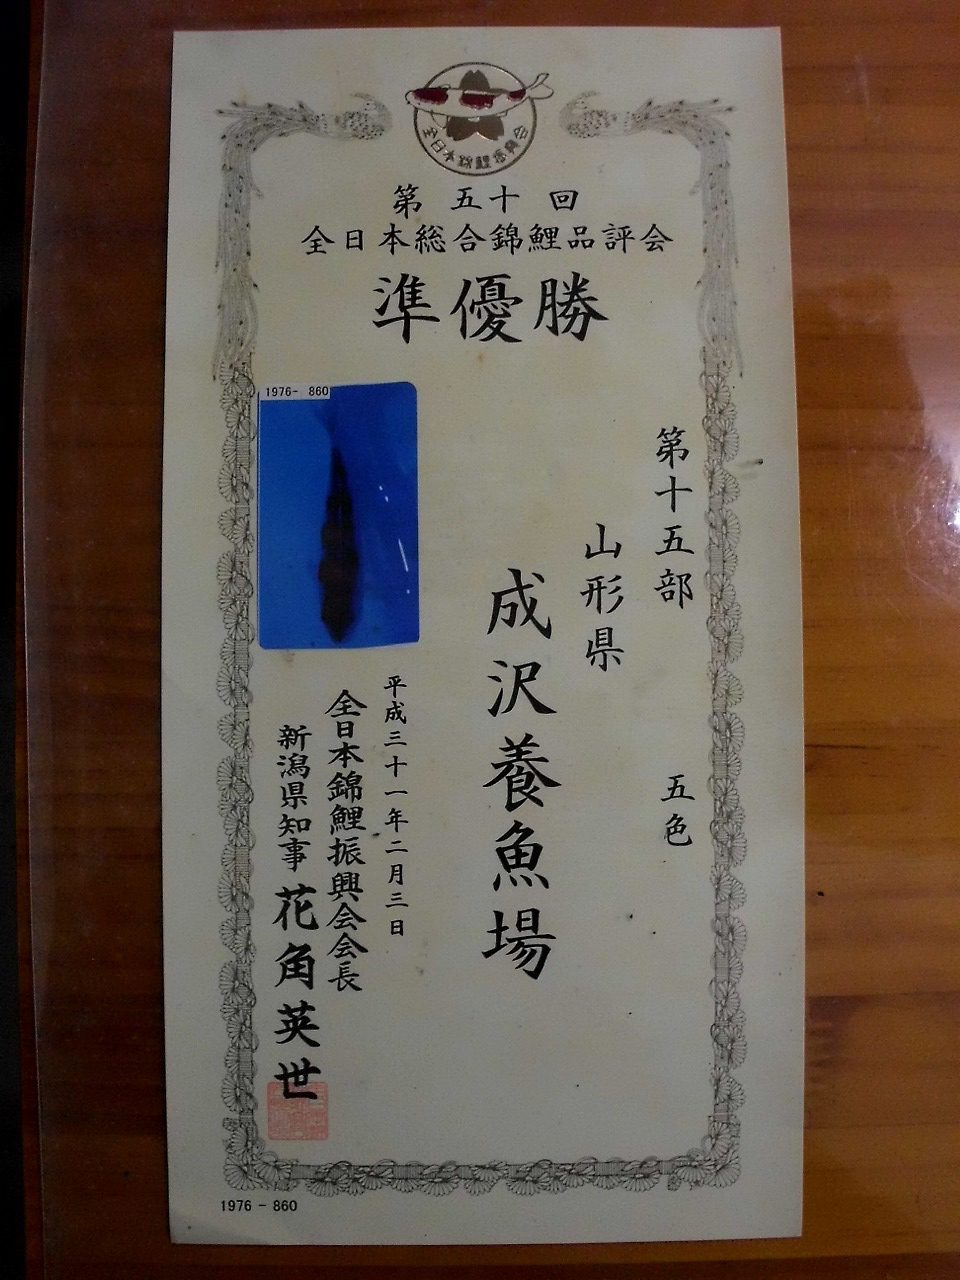 全日本錦鯉振興会
第五十回
全日本総合錦鯉品評会
準優勝
1976- 860
第十五部 五色
山形県
成沢養魚場
平成三十一年二月三日
全日本錦鯉振興会会長
新潟県知事 花角英世
1976 - 860